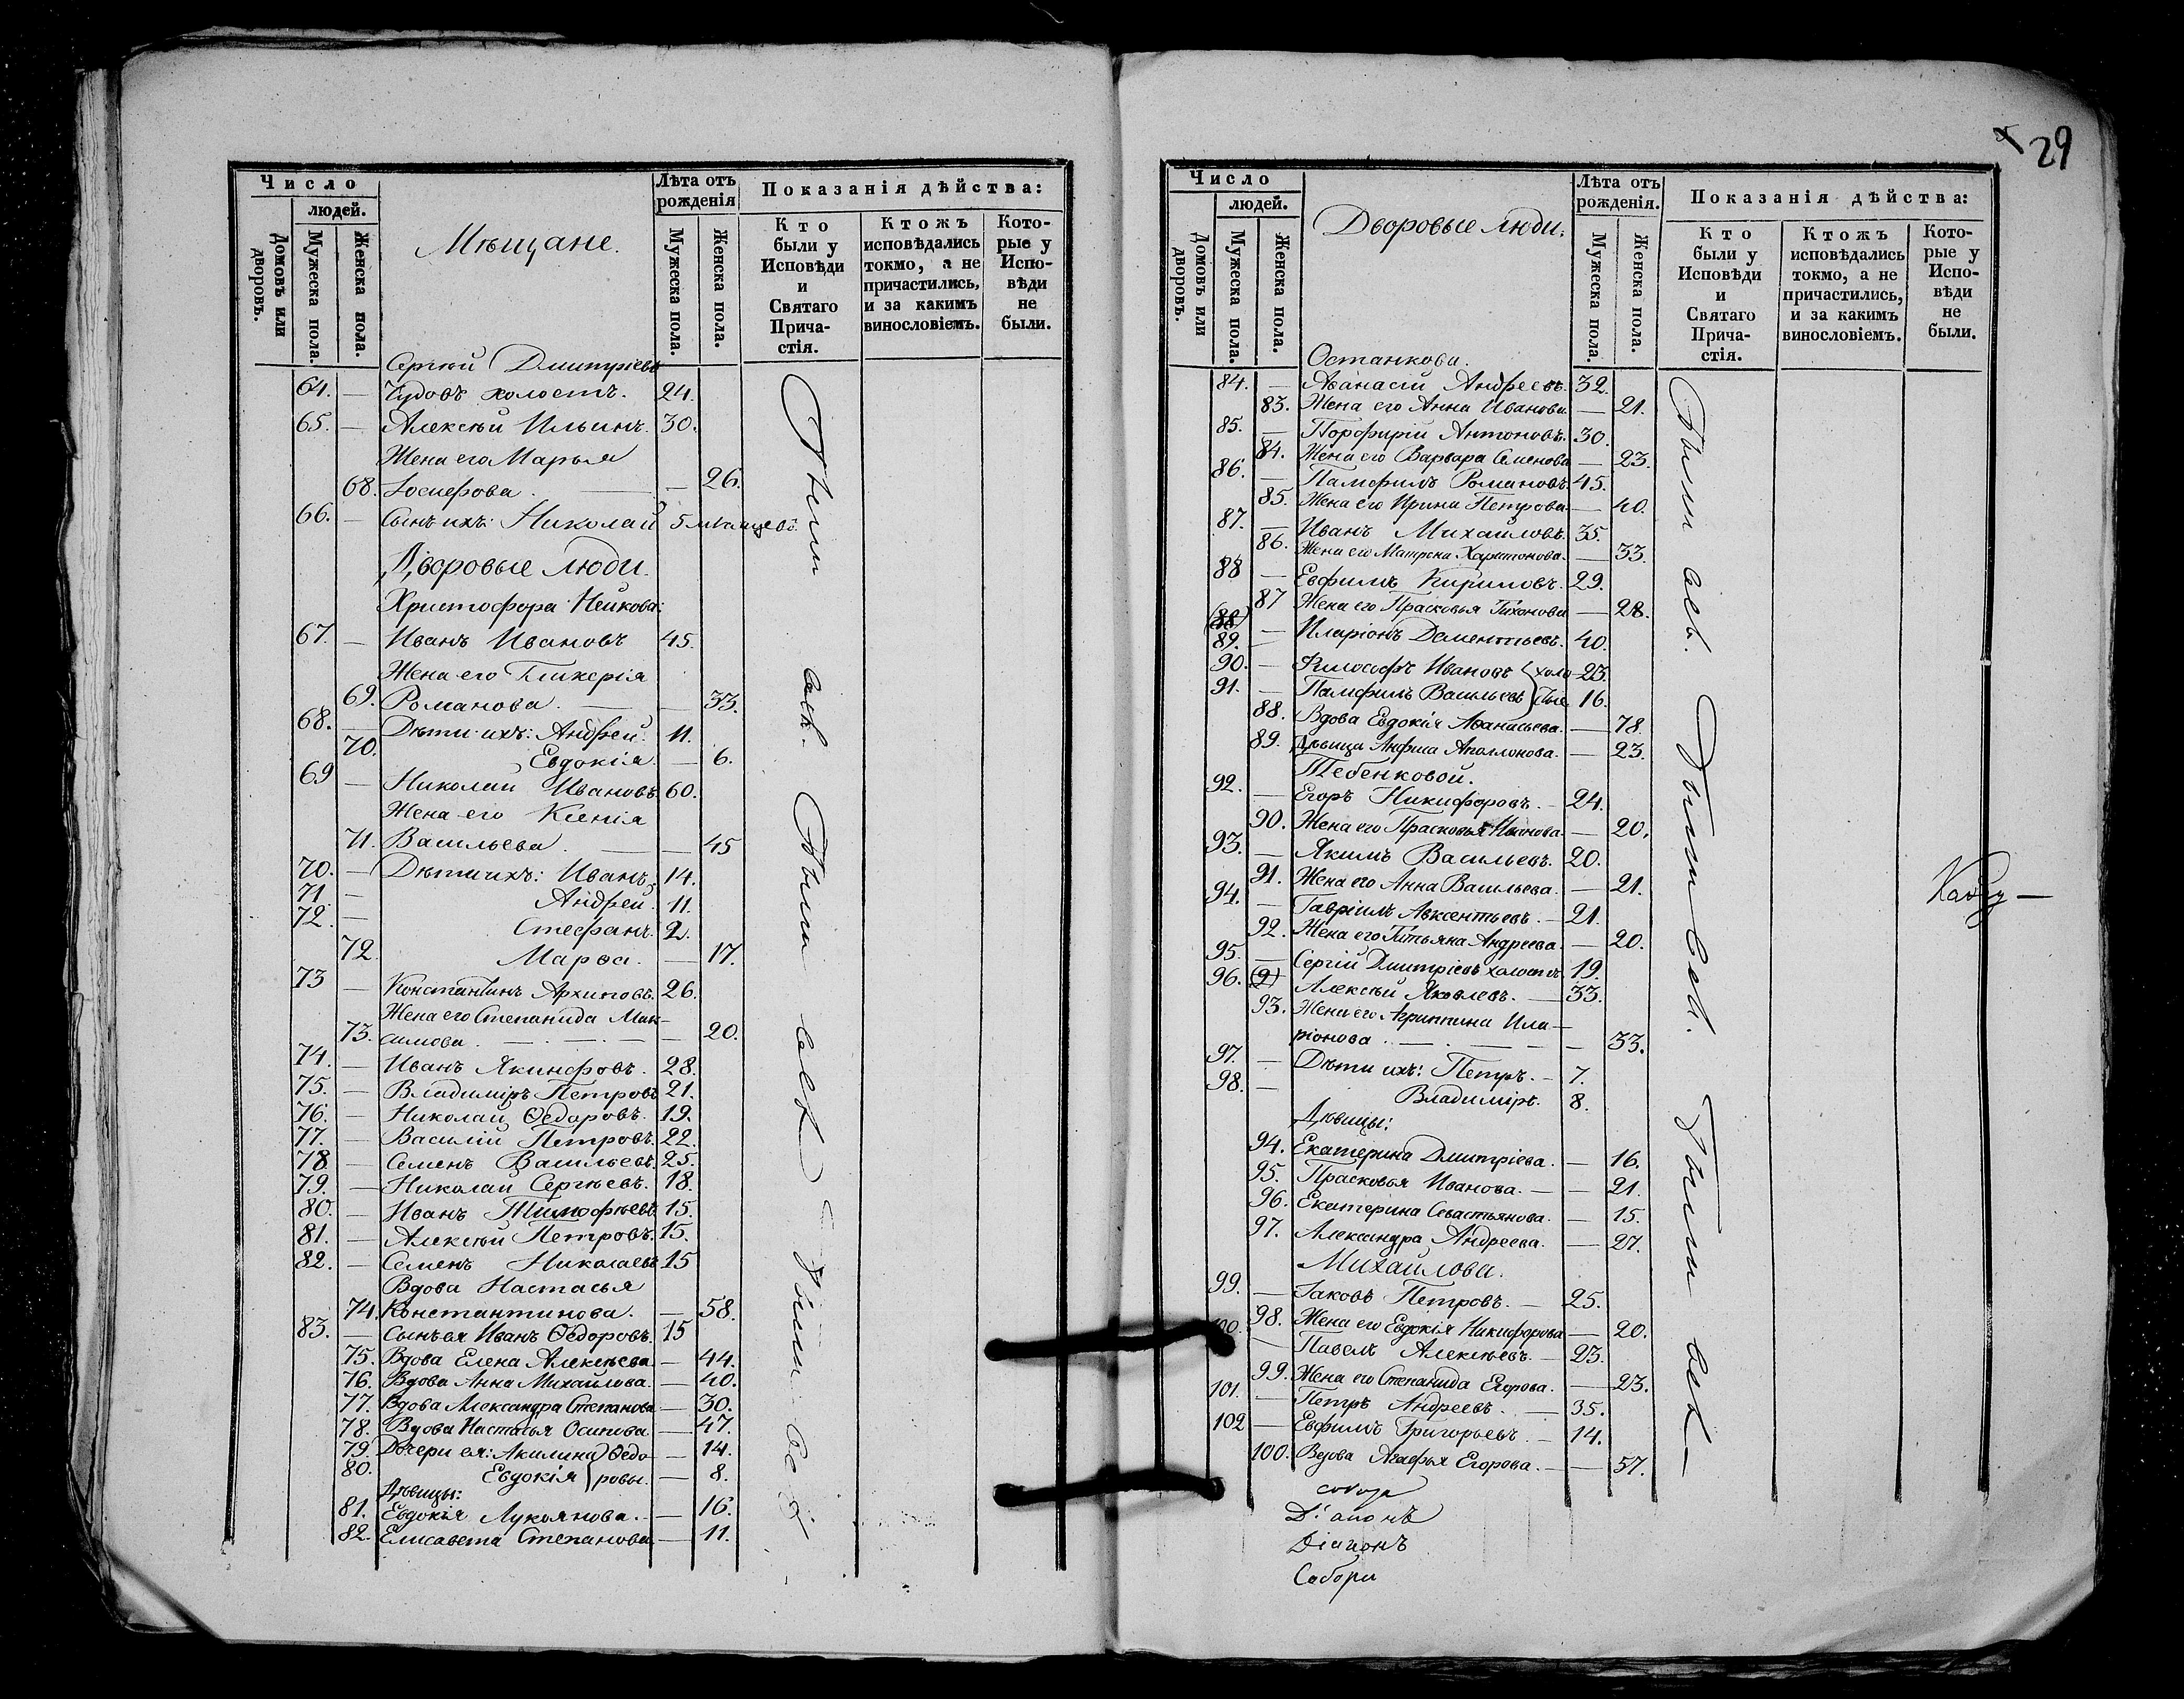 Число
людей.
Домовъ или дворовъ.
Мужеска пола.
Женска пола.
Мѣщане.
Лѣта отъ рожденія
Мужеска пола.
Женска пола.
Показанія дѣйства:
Кто были у Исповѣди и Святаго Прича-стія.
Ктожъ исповѣдались токмо, а не причастились, и за какимъ винословіемъ.
Кото-рые у Испо-вѣди не были.
Сергѣй Дмитріевъ
64. — Чудовъ холостъ. 24.
65. — Алексѣй Ильинъ. 30.
Жена его Марья
68. Іосифова. — 26.
66. — Сынъ ихъ: Николай 5 мѣсяцевъ.
Дворовые люди.
Христофора Нейкова:
67. — Иванъ Ивановъ 45.
Жена его Гликерія
69. Романова. — 33.
68. — Дѣти ихъ: Андрей. 11.
70. Евдокія. — 6.
69 — Николай Ивановъ. 60.
Жена его Ксенія
71. Васильева. — 45
70. — Дѣти ихъ: Иванъ, 14.
71 — Андрей. 11.
72. — Стефанъ. 2.
72. Марѳа. — 17.
73 — Константинъ Архиповъ. 26.
Жена его Степанида Мак-
73. симова. — 20.
74. — Иванъ Якинфовъ. 28.
75. — Владиміръ Петровъ 21.
76. — Николай Ѳедоровъ. 19.
77. — Василій Петровъ. 22.
78 — Семенъ Васильевъ. 25.
79. — Николай Сергѣевъ. 18.
80. — Иванъ Тимофѣевъ 15.
81. — Алексѣй Петровъ. 15.
82. — Семенъ Николаевъ 15
Вдова Настасья
74. Константинова. — 58.
83. — Сынъ ея Иванъ Ѳедоровъ. 15
75. Вдова Елена Алексѣева — 44.
76. Вдова Анна Михайлова. — 40.
77. Вдова Александра Степанова — 30.
78. Вдова Настасья Осипова — 47.
79. Дочери ея: Акилина Ѳедо- — 14.
80. Евдокія ровы. — 8.
Дѣвицы:
81. Евдокія Лукоянова. — 16.
82. Елисавета Степанова — 11.
Были всѣ. Были всѣ Были всѣ
29
Число
людей.
Домовъ или дворовъ.
Мужеска пола.
Женска пола.
Дворовые люди.
Лѣта отъ рожденія.
Мужеска пола.
Женска пола.
Показанія дѣйства:
Кто были у Исповѣди и Святаго Прича-стія.
Ктожъ исповѣдались токмо, а не причастились, и за какимъ винословіемъ.
Кото-рые у Испо-вѣди не были.
Останкова.
84. — Аѳанасій Андреевъ. 32.
83. Жена его Анна Иванова — 21.
85. — Порфирій Антоновъ. 30.
84. Жена его Варвара Семенова — 23.
86. — Памфилъ Романовъ. 45.
85. Жена его Ирина Петрова — 40.
87. — Иванъ Михайловъ. 35.
86. Жена его Матрена Харитонова. — 33.
88 — Евфимъ Кириловъ. 29.
87 Жена его Прасковья Тихонова — 28.
(88)
89. — Иларіонъ Дементьевъ. 40.
90. — Философъ Ивановъ холо- 23.
91. — Памфилъ Васильевъ стые 16.
88. Вдова Евдокія Аѳанасьева. — 78.
89. Дѣвица Анфиса Аполлонова. — 23.
Тебенковой.
92. — Егоръ Никифоровъ. — 24.
90. Жена его Прасковья Иванова. — 20.
93. — Якимъ Васильевъ. 20.
91. Жена его Анна Васильева. — 21.
94. — Гавріилъ Авксентьевъ. — 21.
92. Жена его Татьяна Андреева. — 20.
95. — Сергій Дмитріевъ холостъ. 19.
96. (9) Алексѣй Яковлевъ. — 33.
93. Жена его Агрипина Ила-
ріонова. — 33.
97. — Дѣти ихъ: Петръ. — 7.
98. — Владиміръ. 8.
Дѣвицы:
94. Екатерина Дмитріева. — 16.
95. Прасковья Иванова. — 21.
96. Екатерина Севастьянова. — 15.
97. Александра Андреева. — 27.
Михайлова.
99. — Іаковъ Петровъ. — 25.
98. Жена его Евдокія Никифорова — 20.
100. — Павелъ Алексѣевъ. — 23.
99. Жена его Степанида Егорова. — 23.
101. — Петръ Андреевъ. — 35.
102 — Евфимъ Григорьевъ. — 14.
100. Вдова Агафья Егорова. — 57.
Были всѣ. Были всѣ. Были всѣ
Діаконъ